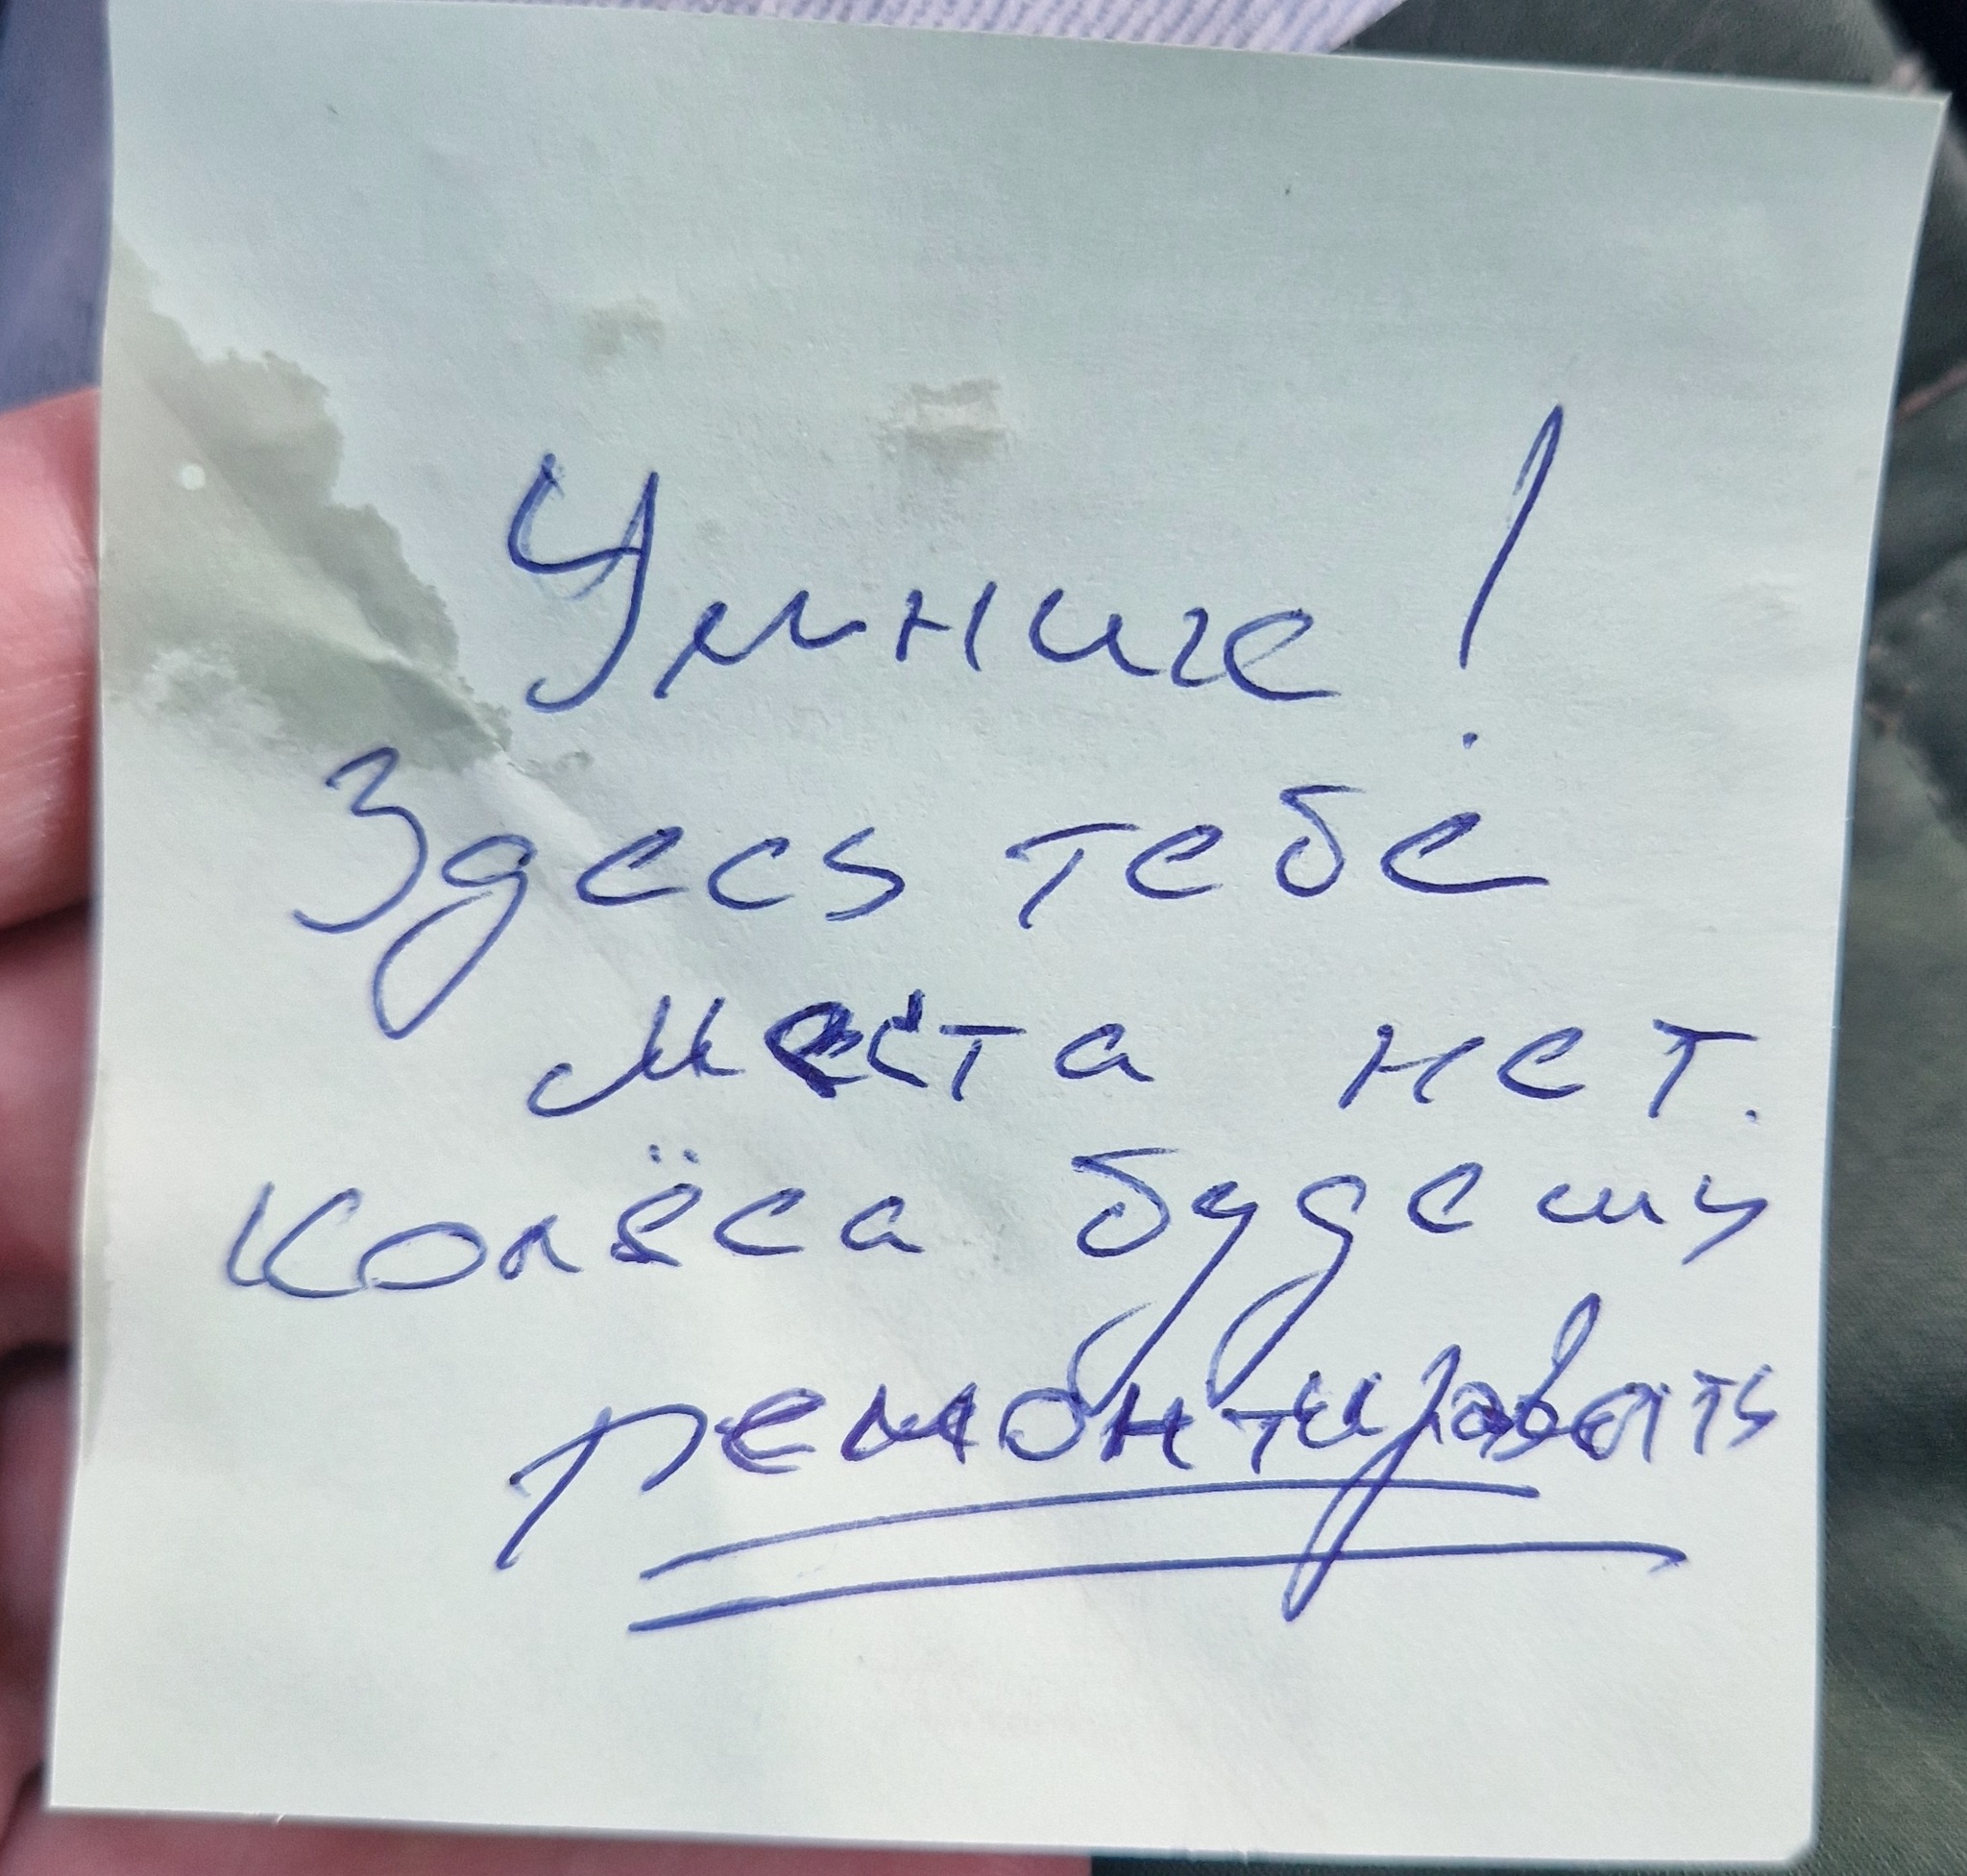 Умнике!
Здесь тебе
места нет.
Колёса будешь
ремонтировать